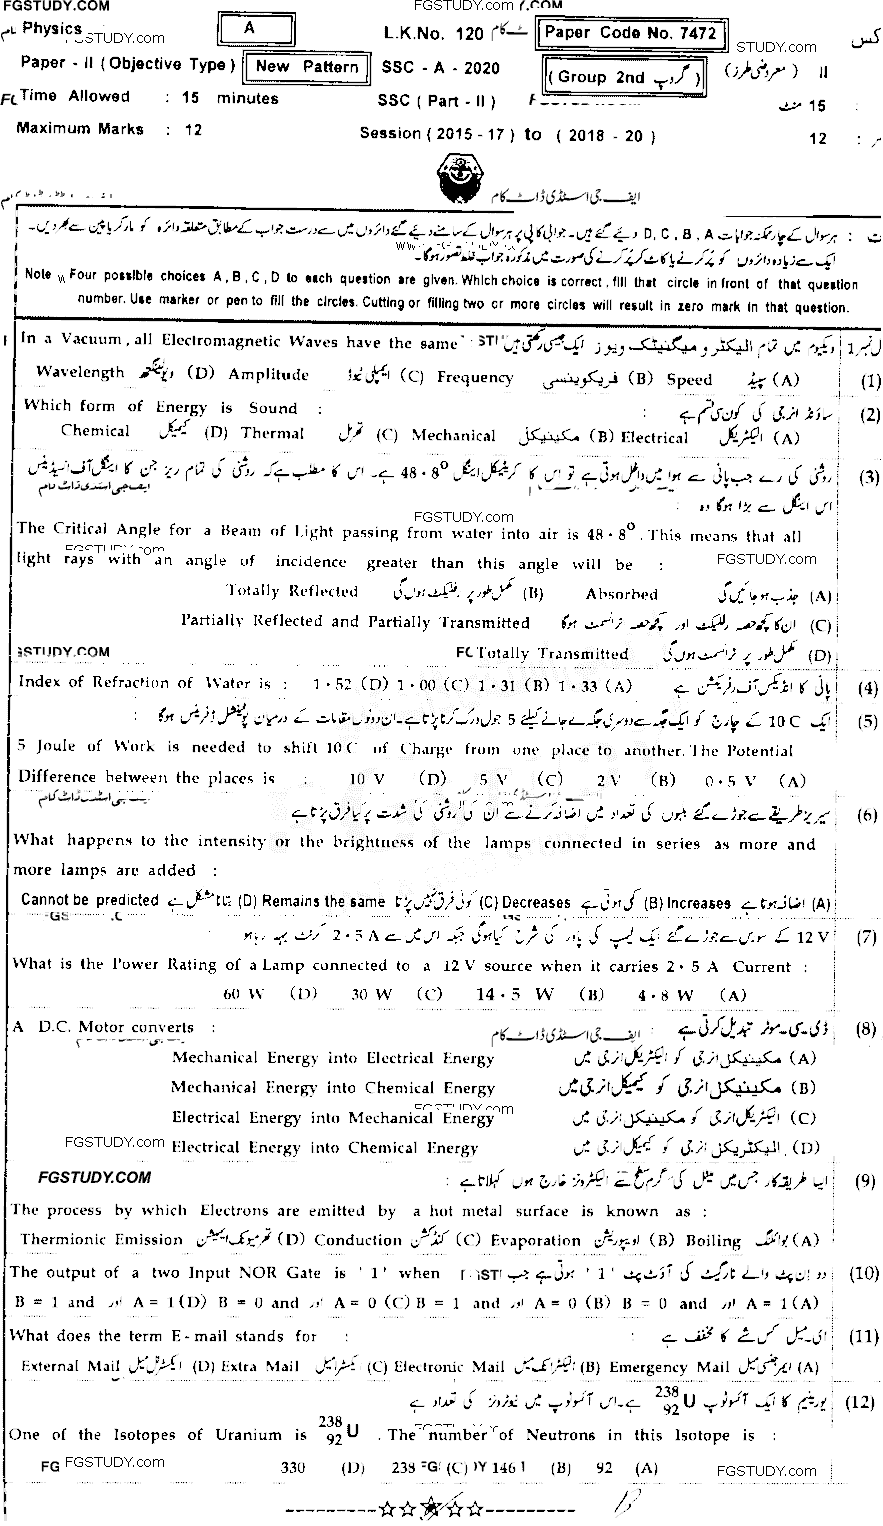 FGSTUDY.COM FGSTUDY.com
Physics A L.K.No. 120 Paper Code No. 7472
FGSTUDY.com STUDY.com
Paper - II ( Objective Type ) New Pattern SSC - A - 2020 (Group 2nd گروپ) II ( معروضی طرز )
Time Allowed : 15 minutes SSC ( Part - II ) 15 منٹ
Maximum Marks : 12 Session ( 2015 - 17 ) to ( 2018 - 20 ) 12
ایف جی اسٹڈی ڈاٹ کام
: ہر سوال کے چار ممکنہ جوابات D, C, B, A دیئے گئے ہیں۔ جوابی کاپی پر ہر سوال کے سامنے دیئے گئے دائروں میں سے درست جواب کے مطابق متعلقہ دائرہ کو مارکر یا پین سے بھر دیں۔
ایک سے زیادہ دائروں کو پُر کرنے یا کاٹ کر پُر کرنے کی صورت میں مذکورہ جواب غلط تصور ہوگا۔
Note Four possible choices A , B , C , D to each question are given. Which choice is correct , fill that circle in front of that question
number. Use marker or pen to fill the circles. Cutting or filling two or more circles will result in zero mark in that question.
In a Vacuum , all Electromagnetic Waves have the same ویکیوم میں تمام الیکٹرومیگنیٹک ویوز ایک جیسی رکھتی ہیں
Wavelength ویولینگتھ (D) Amplitude ایمپلی ٹیوڈ (C) Frequency فریکوینسی (B) Speed سپیڈ (A) (1)
Which form of Energy is Sound : : ساؤنڈ انرجی کی کون سی قسم ہے (2)
Chemical کیمیکل (D) Thermal تھرمل (C) Mechanical مکینیکل (B) Electrical الیکٹریکل (A)
روشنی کی رے جب پانی سے ہوا میں داخل ہوتی ہے تو اس کا کریٹیکل اینگل 48·8° ہے۔ اس کا مطلب ہے کہ روشنی کی تمام ریز جن کا اینگل آف انسیڈینس (3)
اس اینگل سے بڑا ہوگا وہ :
FGSTUDY.com
The Critical Angle for a Beam of Light passing from water into air is 48·8° . This means that all
light rays with an angle of incidence greater than this angle will be : FGSTUDY.com
Totally Reflected مکمل طور پر رفلیکٹ ہوں گی (B) Absorbed جذب ہو جائیں گی (A)
Partially Reflected and Partially Transmitted ان کا کچھ حصہ رفلیکٹ اور کچھ حصہ ٹرانسمٹ ہوگا (C)
STUDY.COM Totally Transmitted مکمل طور پر ٹرانسمٹ ہوں گی (D)
Index of Refraction of Water is : 1·52 (D) 1·00 (C) 1·31 (B) 1·33 (A) پانی کا انڈیکس آف رفریکشن ہے (4)
ایک 10 C کے چارج کو ایک جگہ سے دوسری جگہ لے جانے کیلئے 5 جول ورک کرنا پڑتا ہے۔ ان دونوں مقامات کے درمیان پوٹینشل ڈفرینس ہوگا : (5)
5 Joule of Work is needed to shift 10 C of Charge from one place to another. The Potential
Difference between the places is : 10 V (D) 5 V (C) 2 V (B) 0·5 V (A)
سیریز طریقے سے جوڑے گئے بلبوں کی تعداد میں اضافہ کرنے سے ان کی روشنی کی شدت پر کیا فرق پڑتا ہے (6)
What happens to the intensity or the brightness of the lamps connected in series as more and
more lamps are added :
Cannot be predicted بتانا مشکل ہے (D) Remains the same کوئی فرق نہیں پڑتا (C) Decreases کمی ہوتی ہے (B) Increases اضافہ ہوتا ہے (A)
12 V کے سورس سے جوڑے گئے ایک لیمپ کی پاور کی شرح کیا ہوگی جبکہ اس میں سے 2·5 A کرنٹ بہہ رہا ہو (7)
What is the Power Rating of a Lamp connected to a 12 V source when it carries 2·5 A Current :
60 W (D) 30 W (C) 14·5 W (B) 4·8 W (A)
A D.C. Motor converts : ایف جی اسٹڈی ڈاٹ کام ڈی۔سی۔موٹر تبدیل کرتی ہے : (8)
Mechanical Energy into Electrical Energy مکینیکل انرجی کو الیکٹریکل انرجی میں (A)
Mechanical Energy into Chemical Energy مکینیکل انرجی کو کیمیکل انرجی میں (B)
Electrical Energy into Mechanical Energy الیکٹریکل انرجی کو مکینیکل انرجی میں (C)
FGSTUDY.com Electrical Energy into Chemical Energy الیکٹریکل انرجی کو کیمیکل انرجی میں (D)
FGSTUDY.COM ایسا طریقہ کار جس میں میٹل کی گرم سطح سے الیکٹرونز خارج ہوں کہلاتا ہے : (9)
The process by which Electrons are emitted by a hot metal surface is known as :
Thermionic Emission تھرمیونک ایمیشن (D) Conduction کنڈکشن (C) Evaporation ایویپوریشن (B) Boiling بوائلنگ (A)
The output of a two Input NOR Gate is ' 1 ' when دو ان پٹ والے نارگیٹ کی آؤٹ پٹ ' 1 ' ہوتی ہے جب (10)
B = 1 and اور A = 1 (D) B = 0 and اور A = 0 (C) B = 1 and اور A = 0 (B) B = 0 and اور A = 1 (A)
What does the term E-mail stands for : : ای۔میل کس شے کا مخفف ہے (11)
External Mail ایکسٹرنل میل (D) Extra Mail ایکسٹرا میل (C) Electronic Mail الیکٹرانک میل (B) Emergency Mail ایمرجنسی میل (A)
یورینیم کا ایک آئسوٹوپ ²³⁸₉₂U ہے۔ اس آئسوٹوپ میں نیوٹرونز کی تعداد ہے (12)
One of the Isotopes of Uranium is ²³⁸₉₂U . The number of Neutrons in this Isotope is :
FGSTUDY.com 330 (D) 238 (C) 146 (B) 92 (A) FGSTUDY.com